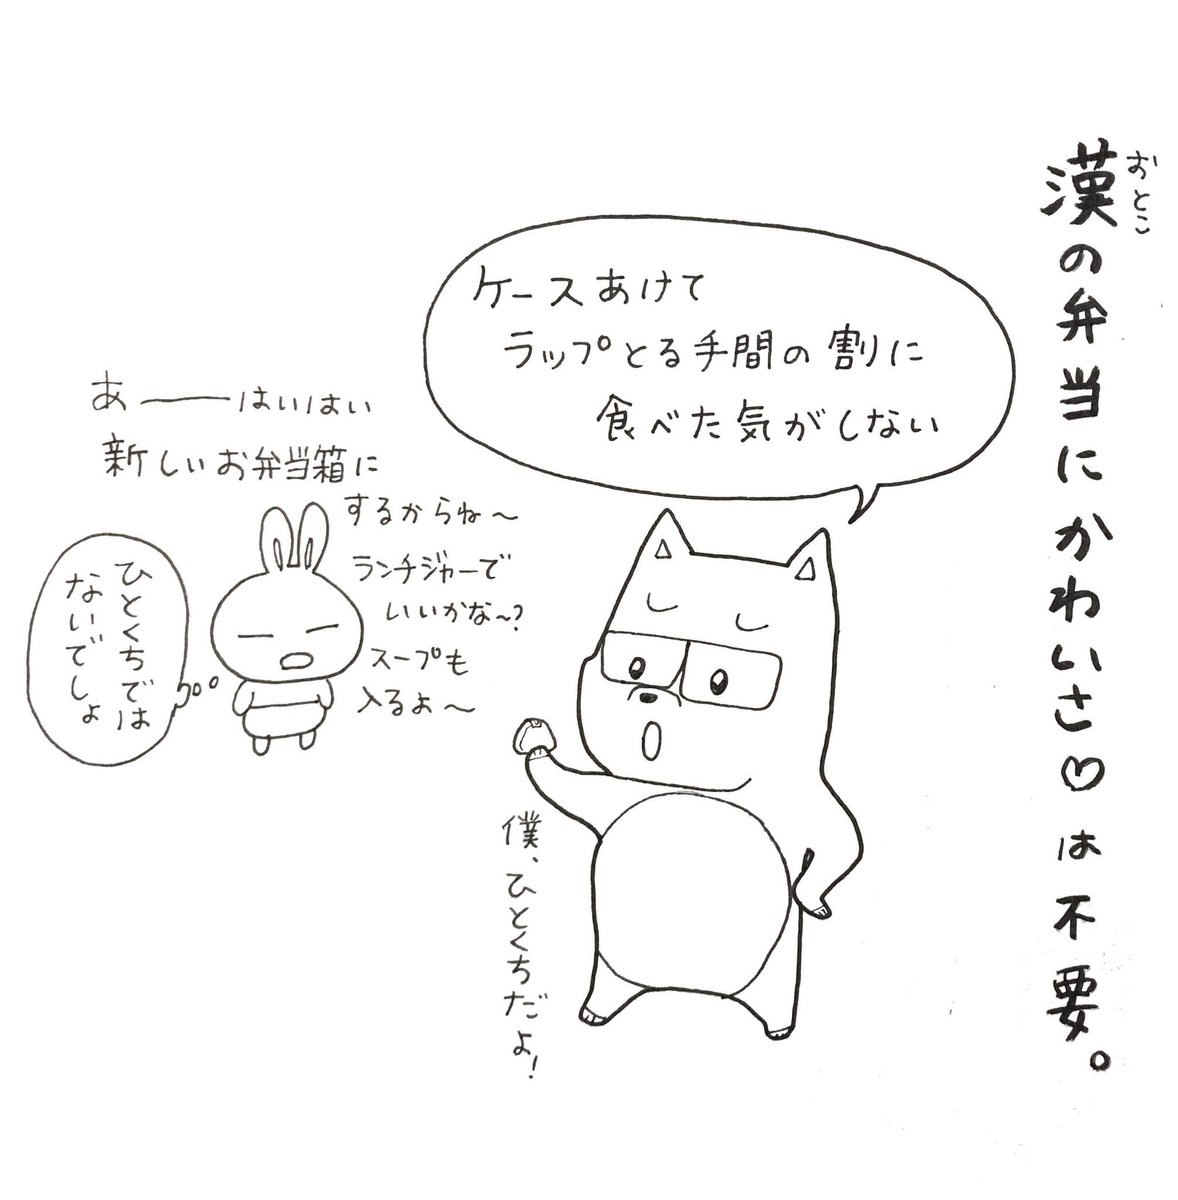 漢の弁当にかわいさ♡は不要。
おとこ
ケースあけて
ラップとる手間の割に
食べた気がしない
僕、ひとくちだよ!
あ――はいはい
新しいお弁当箱に
するからね～
ランチジャーで
いいかな～?
スープも
入るよ～
ひとくちでは
ないでしょ